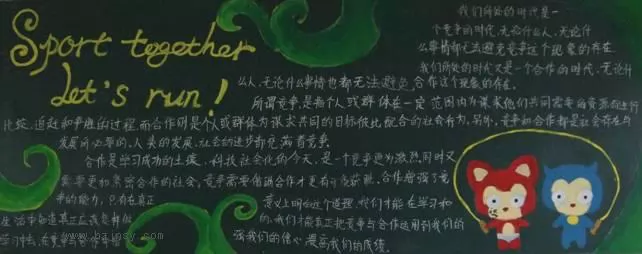 Sport together
Let's run!
我们所处的时代是一
个竞争的时代,无论什么人,无论什
么事情都无法避免竞争这个现象的存在.
我们所处的时代又是一个合作的时代,无论什
么人,无论什么事情也都无法避免合作这个现象的存在.
所谓竞争,是指个人或群体在一定范围内为谋求他们共同需要的资源而进行
比较、追赶和争胜的过程.而合作则是个人或群体为谋求共同的目标彼此配合的社会行为.另外,竞争和合作都是社会存在与
发展所必需的,人类的发展,社会的进步都充满着竞争.
合作是学习成功的土壤.科技社会化的今天,是一个竞争更为激烈同时又
需要更加紧密合作的社会,竞争需要借助合作才更有可能获胜.合作增强了竞
争的能力,只有在真正
意义上明白这个道理,我们才能在学习和
生活中知道真正应该怎样做
的,我们才能真正把竞争与合作运用到我们的
学习中去,在竞争与合作中增
强我们的信心,提高我们的成绩.
www.bainsy.com